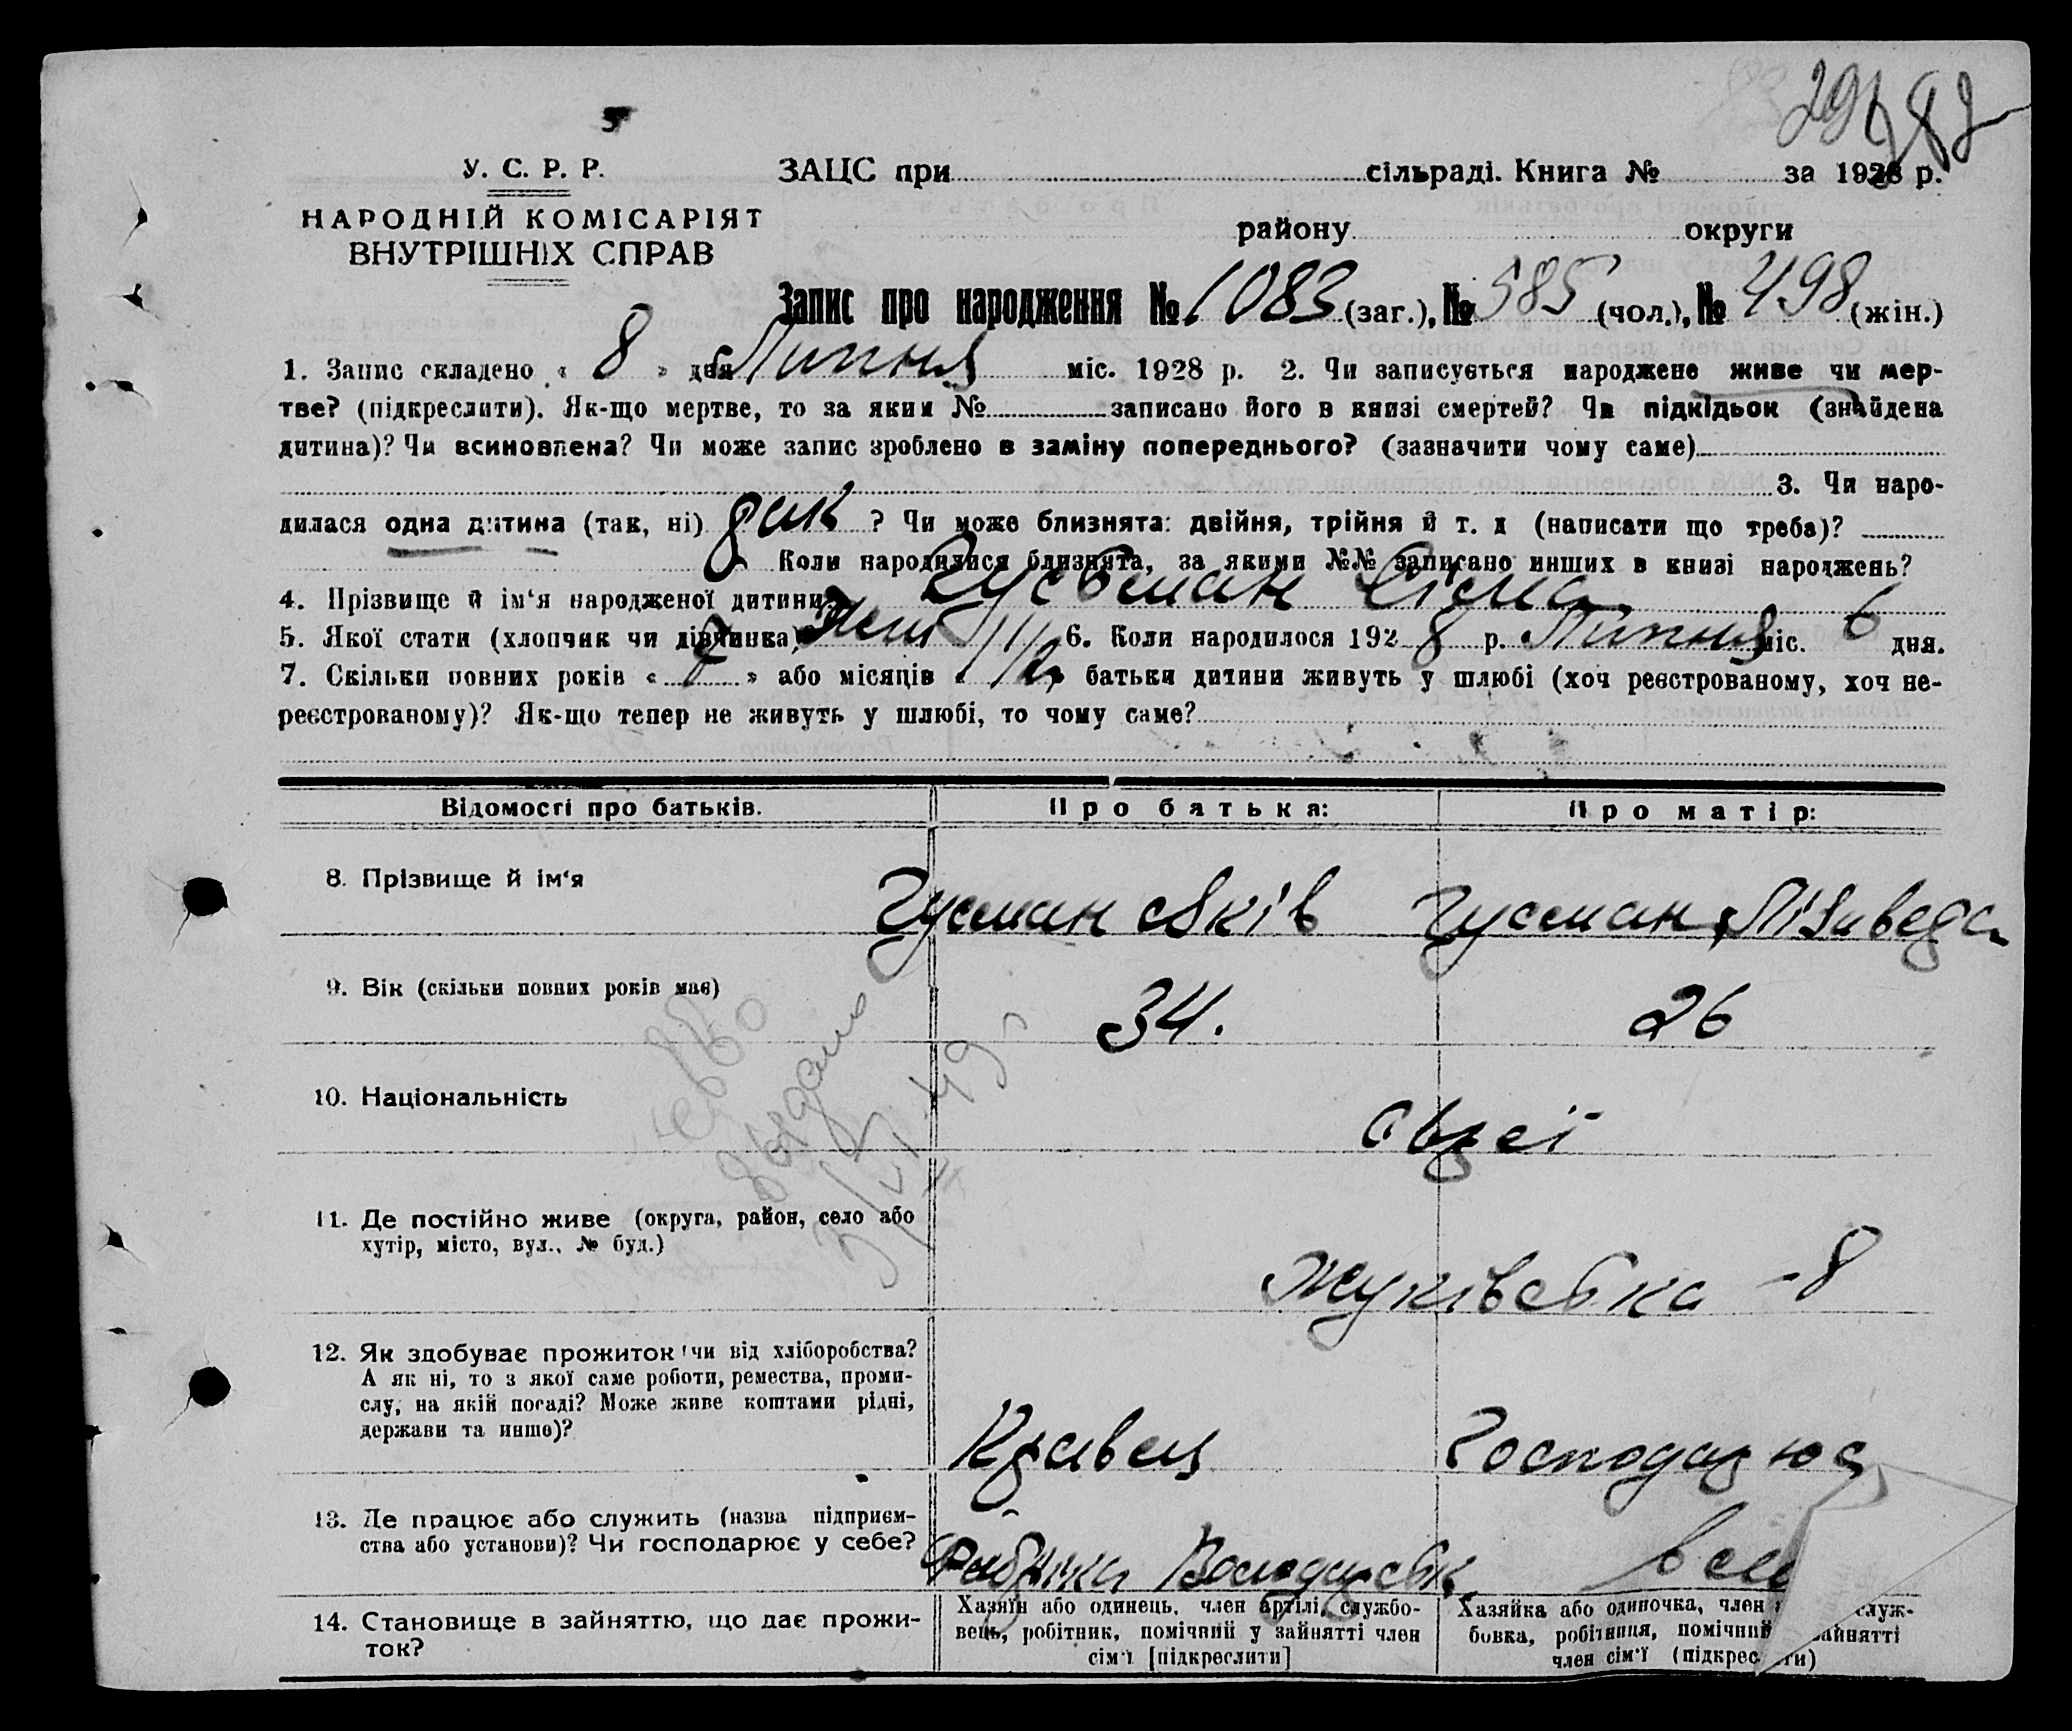 У. С. Р. Р.
НАРОДНІЙ КОМІСАРІЯТ
ВНУТРІШНІХ СПРАВ
ЗАЦС при сільраді. Книга № за 1928 р.
району округи
Запис про народження № 1083 (заг.), № 585 (чол.), № 498 (жін.)
1. Запис складено « 8 » дня Липня міс. 1928 р. 2. Чи записується народжене живе чи мер-
тве? (підкреслити). Як-що мертве, то за яким № записано його в книзі смертей? Чи підкідьок (знайдена
дитина)? Чи всиновлена? Чи може запис зроблено в заміну попереднього? (зазначити чому саме)
3. Чи наро-
дилася одна дитина (так, ні) так ? Чи може близнята: двійня, трійня й т. д (написати що треба)?
Коли народилися близнята, за якими №№ записано инших в книзі народжень?
4. Прізвище й ім‘я народженої дитини:
5. Якої стати (хлопчик чи дівчинка) жін 6. Коли народилося 1928 р. Липня міс. 6 дня.
7. Скільки повних років « » або місяців « » батьки дитини живуть у шлюбі (хоч реєстрованому, хоч не-
реєстрованому)? Як-що тепер не живуть у шлюбі, то чому саме?
Відомості про батьків. Про батька: Про матір:
8. Прізвище й ім‘я Гусман Яків Гусман Лізаведа
9. Вік (скільки повних років має) 34. 26
10. Національність євреї
11. Де постійно живе (округа, район, село або
хутір, місто, вул., № буд.)
Жуківська - 8
12. Як здобуває прожиток чи від хліборобства?
А як ні, то з якої саме роботи, ремества, проми-
слу, на якій посаді? Може живе коштами рідні,
держави та инше)?
Кравець Господарює
13. Де працює або служить (назва підприєм-
ства або установи)? Чи господарює у себе?
Фабрика Володарськ.
14. Становище в зайняттю, що дає прожи-
ток?
Хазяїн або одинець, член артілі, службо-
вець, робітник, помічний у зайнятті член
сім‘ї [підкреслити]
Хазяйка або одиночка, член служ-
бовка, робітниця, помічний зайнятті
член сім‘ї (підкрес ти)
выдано